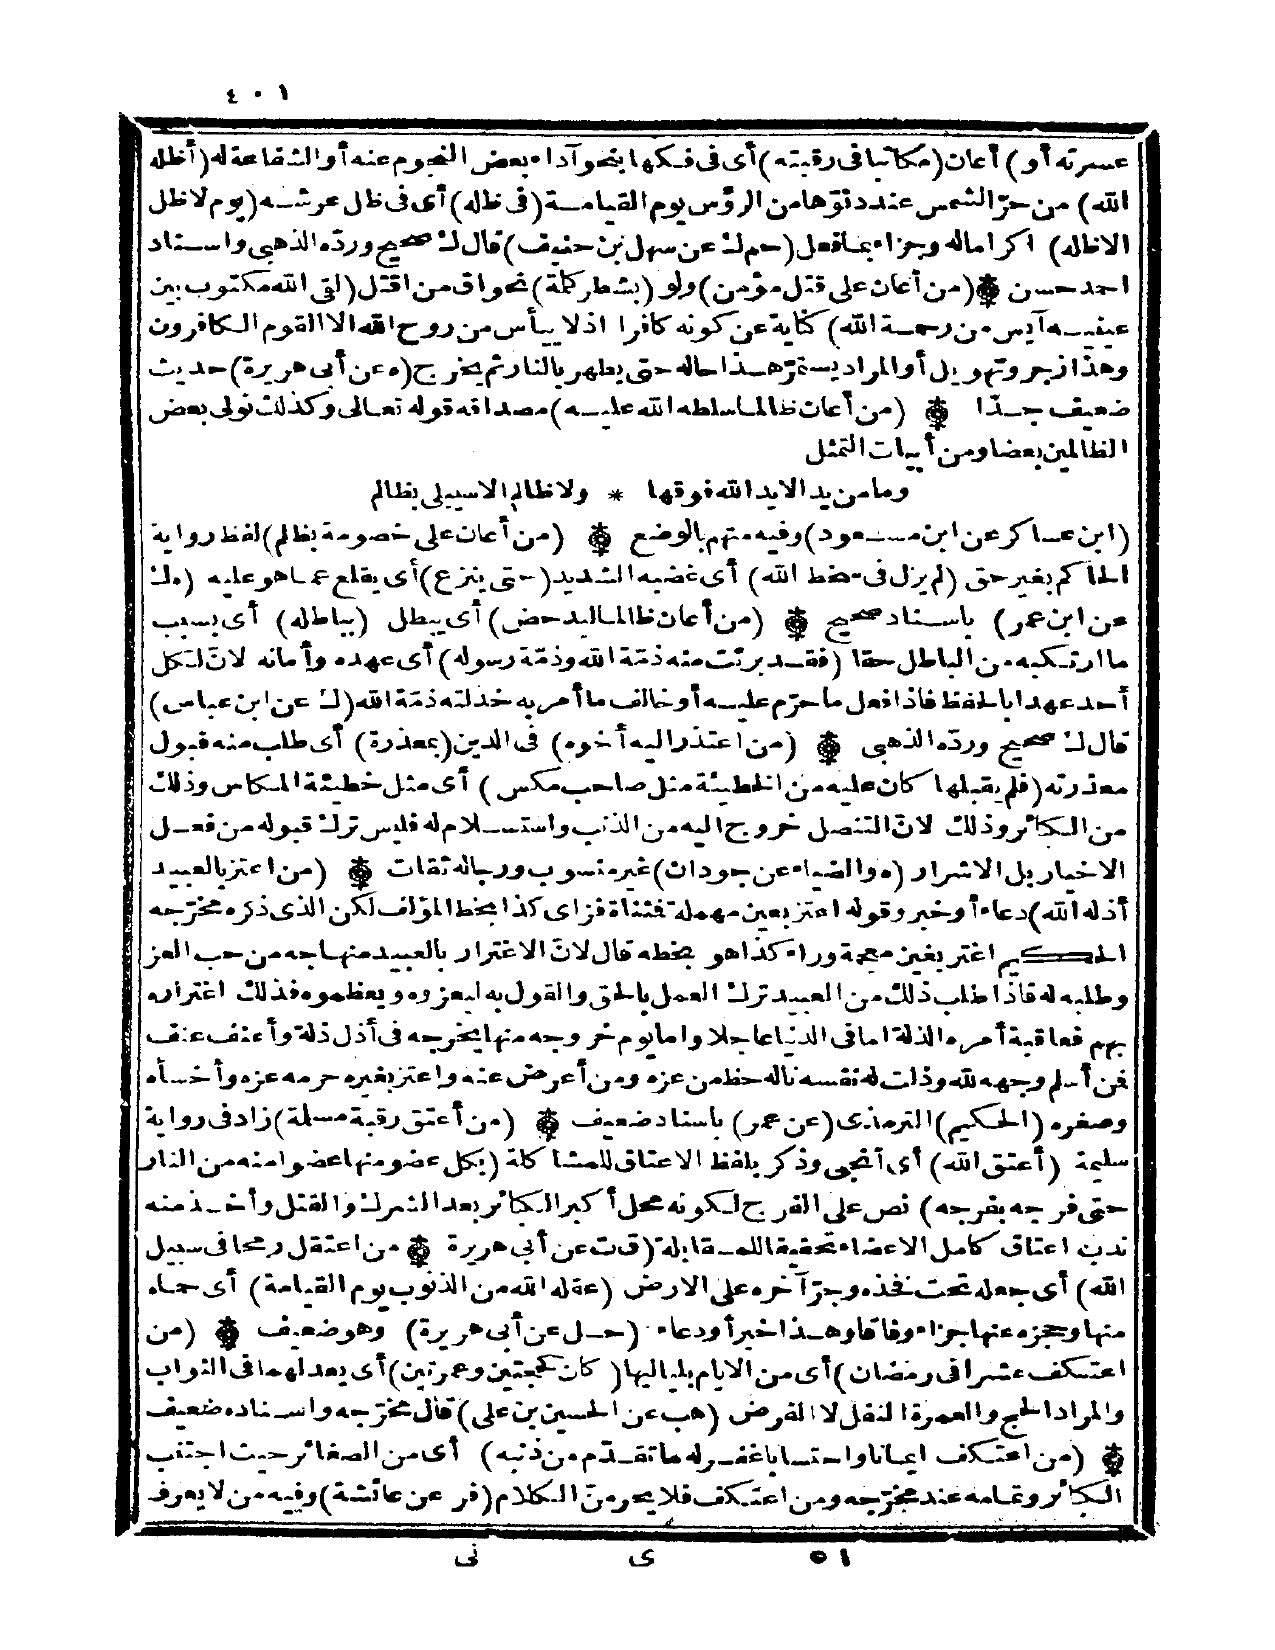 ٤٠١
عسرته أو) أعان (مكاتبا فى رقبته) أى فى فكها بنحو آداء بعض النجوم عنه أو الشفاعة له (أظله
الله) من حرّ الشمس عند دنوّها من الرؤس يوم القيامة (فى ظله) أى فى ظل عرشه (يوم لا ظل
الا ظله) اكراما له وجزاء بما فعل (حم ك عن سهل بن حنيف) قال ك صحيح وردّه الذهبى واسناد
احمد حسن ۞ (من أعان على قتل مؤمن) ولو (بشطر كلمة) نحو اق من اقتل (لقى الله مكتوب بين
عينيه آيس من رحمة الله) كناية عن كونه كافرا اذ لا ييأس من روح الله الا القوم الكافرون
وهذا زجر وتهويل أو المراد يستمرّ هذا حاله حتى يطهر بالنار ثم يخرج (ه عن أبى هريرة) حديث
ضعيف جدّا ۞ (من أعان ظالما سلطه الله عليه) مصداقه قوله تعالى وكذلك نولى بعض
الظالمين بعضا ومن أبيات التمثل
وما من يد الا يد الله فوقها * ولا ظالم الا سيبلى بظالم
(ابن عساكر عن ابن مسعود) وفيه متهم بالوضع ۞ (من أعان على خصومة بظلم) لفظ رواية
الحاكم بغير حق (لم يزل فى سخط الله) أى غضبه الشديد (حتى ينزع) أى يقلع عما هو عليه (ه ك
عن ابن عمر) باسناد صحيح ۞ (من أعان ظالما ليدحض) أى يبطل (بباطله) أى بسبب
ما ارتكبه من الباطل حقا (فقد برئت منه ذمّة الله وذمّة رسوله) أى عهده وأمانه لانّ لكل
أحد عهدا بالحفظ فاذا فعل ما حرّم عليه أو خالف ما أمر به خذلته ذمّة الله (ك عن ابن عباس)
قال ك صحيح وردّه الذهبى ۞ (من اعتذر اليه أخوه) فى الدين (بمعذرة) أى طلب منه قبول
معذرته (فلم يقبلها كان عليه من الخطيئة مثل صاحب مكس) أى مثل خطيئة المكاس وذلك
من الكبائر وذلك لانّ التنصل خروج اليه من الذنب واستسلام له فليس ترك قبوله من فعل
الاخيار بل الاشرار (ه والضياء عن جودان) غير منسوب ورجاله ثقات ۞ (من اعتز بالعبيد
أذله الله) دعاء أو خبر وقوله اعتز بعين مهملة فمثناة فزاى كذا بخط المؤلف لكن الذى ذكره مخرّجه
الحكيم اغتر بغين معجمة وراء كذا هو بخطه قال لانّ الاغترار بالعبيد منهاجه من حب العز
وطلبه له فاذا طلب ذلك من العبيد ترك العمل بالحق والقول به ليعزوه ويعظموه فذلك اغتراره
بهم فعاقبة أمره الذلة اما فى الدنيا عاجلا واما يوم خروجه منها يخرجه فى أذل ذلة وأعنف عنف
فمن أسلم وجهه لله وذلت له نفسه ناله حظ من عزه ومن أعرض عنه واعتز بغيره حرمه عزه وأخسأه
وصغره (الحكيم) الترمذى (عن عمر) باسناد ضعيف ۞ (من أعتق رقبة مسلمة) زاد فى رواية
سليمة (أعتق الله) أى أنجى وذكر بلفظ الاعتاق للمشاكلة (بكل عضو منها عضوا منه من النار
حتى فرجه بفرجه) نص على الفرج لكونه محل أكبر الكبائر بعد الشرك والقتل وأخذ منه
ندب اعتاق كامل الاعضاء تحقيقا للمقابلة (ق ت عن أبى هريرة ۞ من اعتقل رمحا فى سبيل
الله) أى جعله تحت فخذه وجرّ آخره على الارض (عقله الله من الذنوب يوم القيامة) أى حماه
منها وحجزه عنها جزاء وفاقا وهذا خبر أو دعاء (حل عن أبى هريرة) وهو ضعيف ۞ (من
اعتكف عشرا فى رمضان) أى من الايام بلياليها (كان كحجتين وعمرتين) أى يعدلهما فى الثواب
والمراد الحج والعمرة النفل لا الفرض (هب عن الحسين بن على) قال مخرّجه واسناده ضعيف
۞ (من اعتكف ايمانا واحتسابا غفر له ما تقدّم من ذنبه) أى من الصغائر حيث اجتنب
الكبائر وتمامه عند مخرّجه ومن اعتكف فلا يحرمنّ الكلام (فر عن عائشة) وفيه من لا يعرف
٥١ ى نى